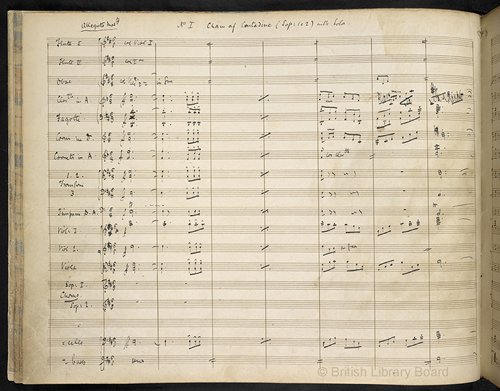 Allegretto modto No I Chorus of Contadine (Sops 1 & 2) with Solo
Flute I col Viol I
Flute II
Oboe
Clartti in A
Fagotti
Corni in D
Cornets in A
1. 2.
Tromboni
3
Timpani D. A.
Viol: I
Viol 2.
Viola
Sop: I.
Chorus
Sop: 2.
Cello
Bass
© British Library Board